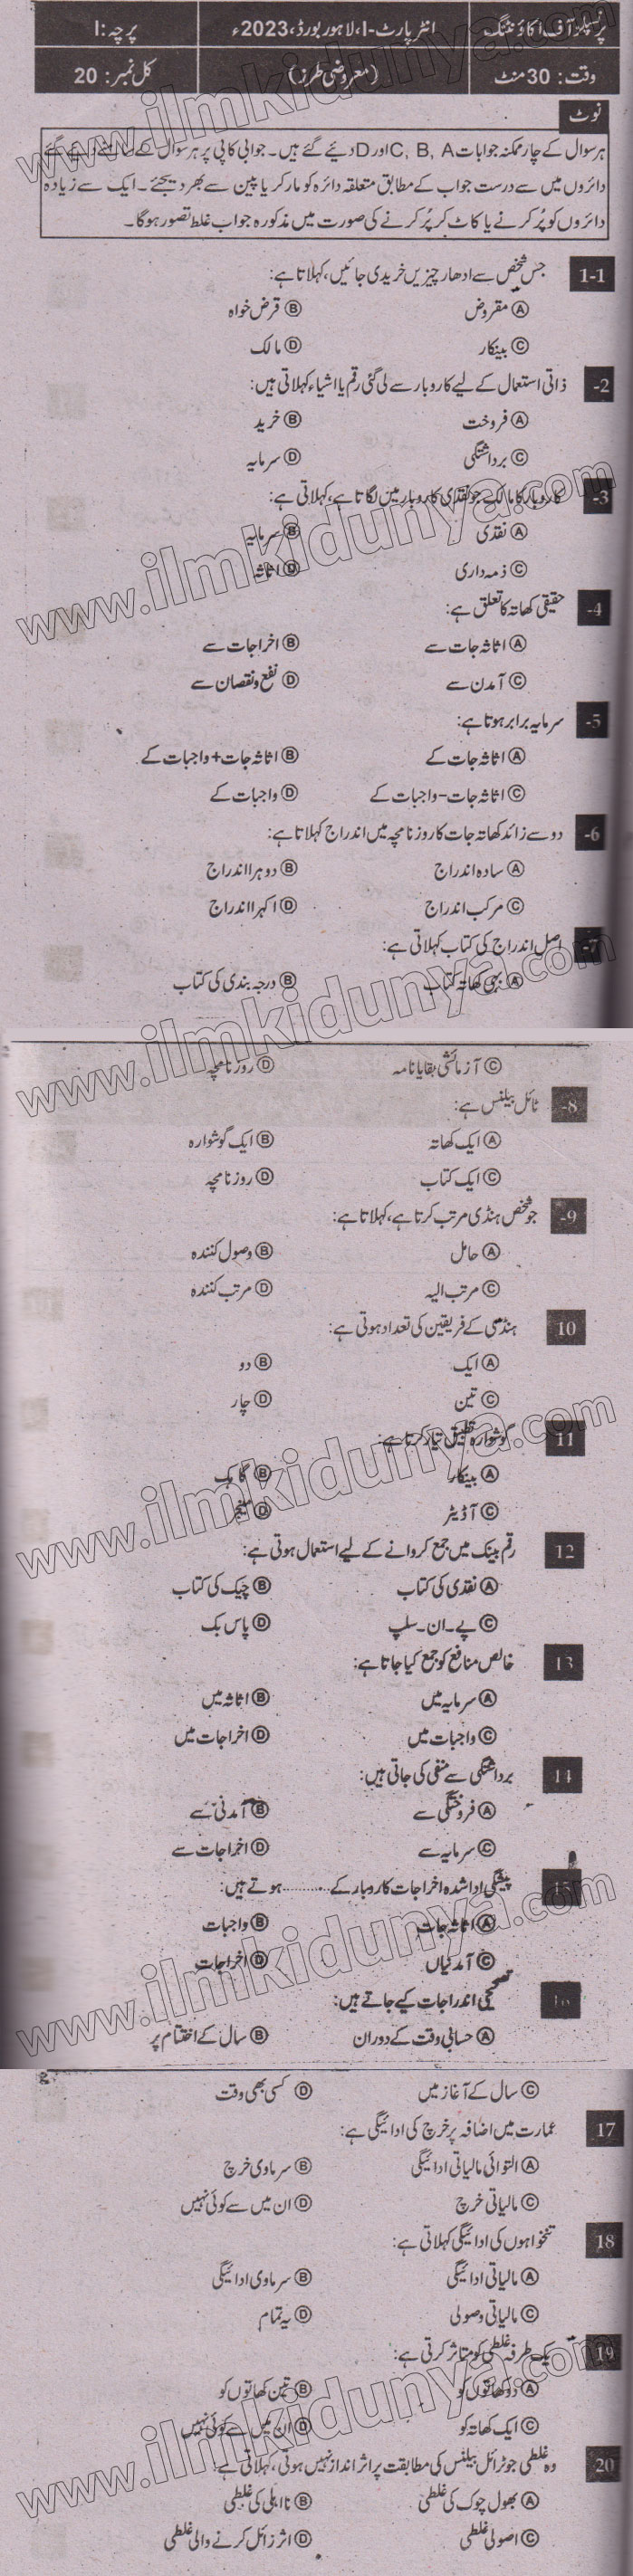 پرنسپلز آف اکاؤنٹنگ انٹر پارٹ-I، لاہور بورڈ، 2023ء پرچہ: I
وقت: 30 منٹ (معروضی طرز) کل نمبر: 20
نوٹ
ہر سوال کے چار ممکنہ جوابات C, B, A اور D دئیے گئے ہیں۔ جوابی کاپی پر ہر سوال کے سامنے دئیے گئے
دائروں میں سے درست جواب کے مطابق متعلقہ دائرہ کو مارکر یا پین سے بھر دیجئے۔ ایک سے زیادہ
دائروں کو پُر کرنے یا کاٹ کر پُر کرنے کی صورت میں مذکورہ جواب غلط تصور ہوگا۔
1-1 جس شخص سے ادھار چیزیں خریدی جائیں، کہلاتا ہے:
Ⓐ مقروض Ⓑ قرض خواہ
Ⓒ بینکار Ⓓ مالک
-2 ذاتی استعمال کے لیے کاروبار سے لی گئی رقم یا اشیاء کہلاتی ہیں:
Ⓐ فروخت Ⓑ خرید
Ⓒ برداشتگی Ⓓ سرمایہ
-3 کاروبار کا مالک جو نقدی کاروبار میں لگاتا ہے، کہلاتی ہے:
Ⓐ نقدی Ⓑ سرمایہ
Ⓒ ذمہ داری Ⓓ اثاثہ
-4 حقیقی کھاتہ کا تعلق ہے:
Ⓐ اثاثہ جات سے Ⓑ اخراجات سے
Ⓒ آمدن سے Ⓓ نفع و نقصان سے
-5 سرمایہ برابر ہوتا ہے:
Ⓐ اثاثہ جات کے Ⓑ اثاثہ جات + واجبات کے
Ⓒ اثاثہ جات – واجبات کے Ⓓ واجبات کے
-6 دو سے زائد کھاتہ جات کا روزنامچہ میں اندراج کہلاتا ہے:
Ⓐ سادہ اندراج Ⓑ دوہرا اندراج
Ⓒ مرکب اندراج Ⓓ اکہرا اندراج
-7 اصل اندراج کی کتاب کہلاتی ہے:
Ⓐ بہی کھاتہ کتاب Ⓑ درجہ بندی کی کتاب
Ⓒ آزمائشی بقایا نامہ Ⓓ روزنامچہ
-8 ٹائل بیلنس ہے:
Ⓐ ایک کھاتہ Ⓑ ایک گوشوارہ
Ⓒ ایک کتاب Ⓓ روزنامچہ
-9 جو شخص ہنڈی مرتب کرتا ہے، کہلاتا ہے:
Ⓐ حامل Ⓑ وصول کنندہ
Ⓒ مرتب الیہ Ⓓ مرتب کنندہ
10 ہنڈی کے فریقین کی تعداد ہوتی ہے:
Ⓐ ایک Ⓑ دو
Ⓒ تین Ⓓ چار
11 گوشوارہ تطبیق تیار کرتا ہے:
Ⓐ بینکار Ⓑ گاہک
Ⓒ آڈیٹر Ⓓ منیجر
12 رقم بینک میں جمع کروانے کے لیے استعمال ہوتی ہے:
Ⓐ نقدی کی کتاب Ⓑ چیک کی کتاب
Ⓒ پے۔ان۔سلپ Ⓓ پاس بک
13 خالص منافع کو جمع کیا جاتا ہے:
Ⓐ سرمایہ میں Ⓑ اثاثہ میں
Ⓒ واجبات میں Ⓓ اخراجات میں
14 برداشتگی سے منفی کی جاتی ہیں:
Ⓐ فروختگی سے Ⓑ آمدنی سے
Ⓒ سرمایہ سے Ⓓ اخراجات سے
15 پیشگی ادا شدہ اخراجات کاروبار کے ......... ہوتے ہیں:
Ⓐ اثاثہ جات Ⓑ واجبات
Ⓒ آمدنیاں Ⓓ اخراجات
16 تصحیحی اندراجات کیے جاتے ہیں:
Ⓐ حسابی وقت کے دوران Ⓑ سال کے اختتام پر
Ⓒ سال کے آغاز میں Ⓓ کسی بھی وقت
17 عمارت میں اضافہ پر خرچ کی ادائیگی ہے:
Ⓐ التوائی مالیاتی ادائیگی Ⓑ سرماوی خرچ
Ⓒ مالیاتی خرچ Ⓓ ان میں سے کوئی نہیں
18 تنخواہوں کی ادائیگی کہلاتی ہے:
Ⓐ مالیاتی ادائیگی Ⓑ سرماوی ادائیگی
Ⓒ مالیاتی وصولی Ⓓ یہ تمام
19 یک طرفہ غلطی کو متاثر کرتی ہے:
Ⓐ دو کھاتوں کو Ⓑ تین کھاتوں کو
Ⓒ ایک کھاتہ کو Ⓓ ان میں سے کوئی نہیں
20 وہ غلطی جو ٹرائل بیلنس کی مطابقت پر اثر انداز نہیں ہوتی، کہلاتی ہے:
Ⓐ بھول چوک کی غلطی Ⓑ نااہلی کی غلطی
Ⓒ اصولی غلطی Ⓓ اثر زائل کرنے والی غلطی
www.ilmkidunya.com
www.ilmkidunya.com
www.ilmkidunya.com
www.ilmkidunya.com
www.ilmkidunya.com
www.ilmkidunya.com